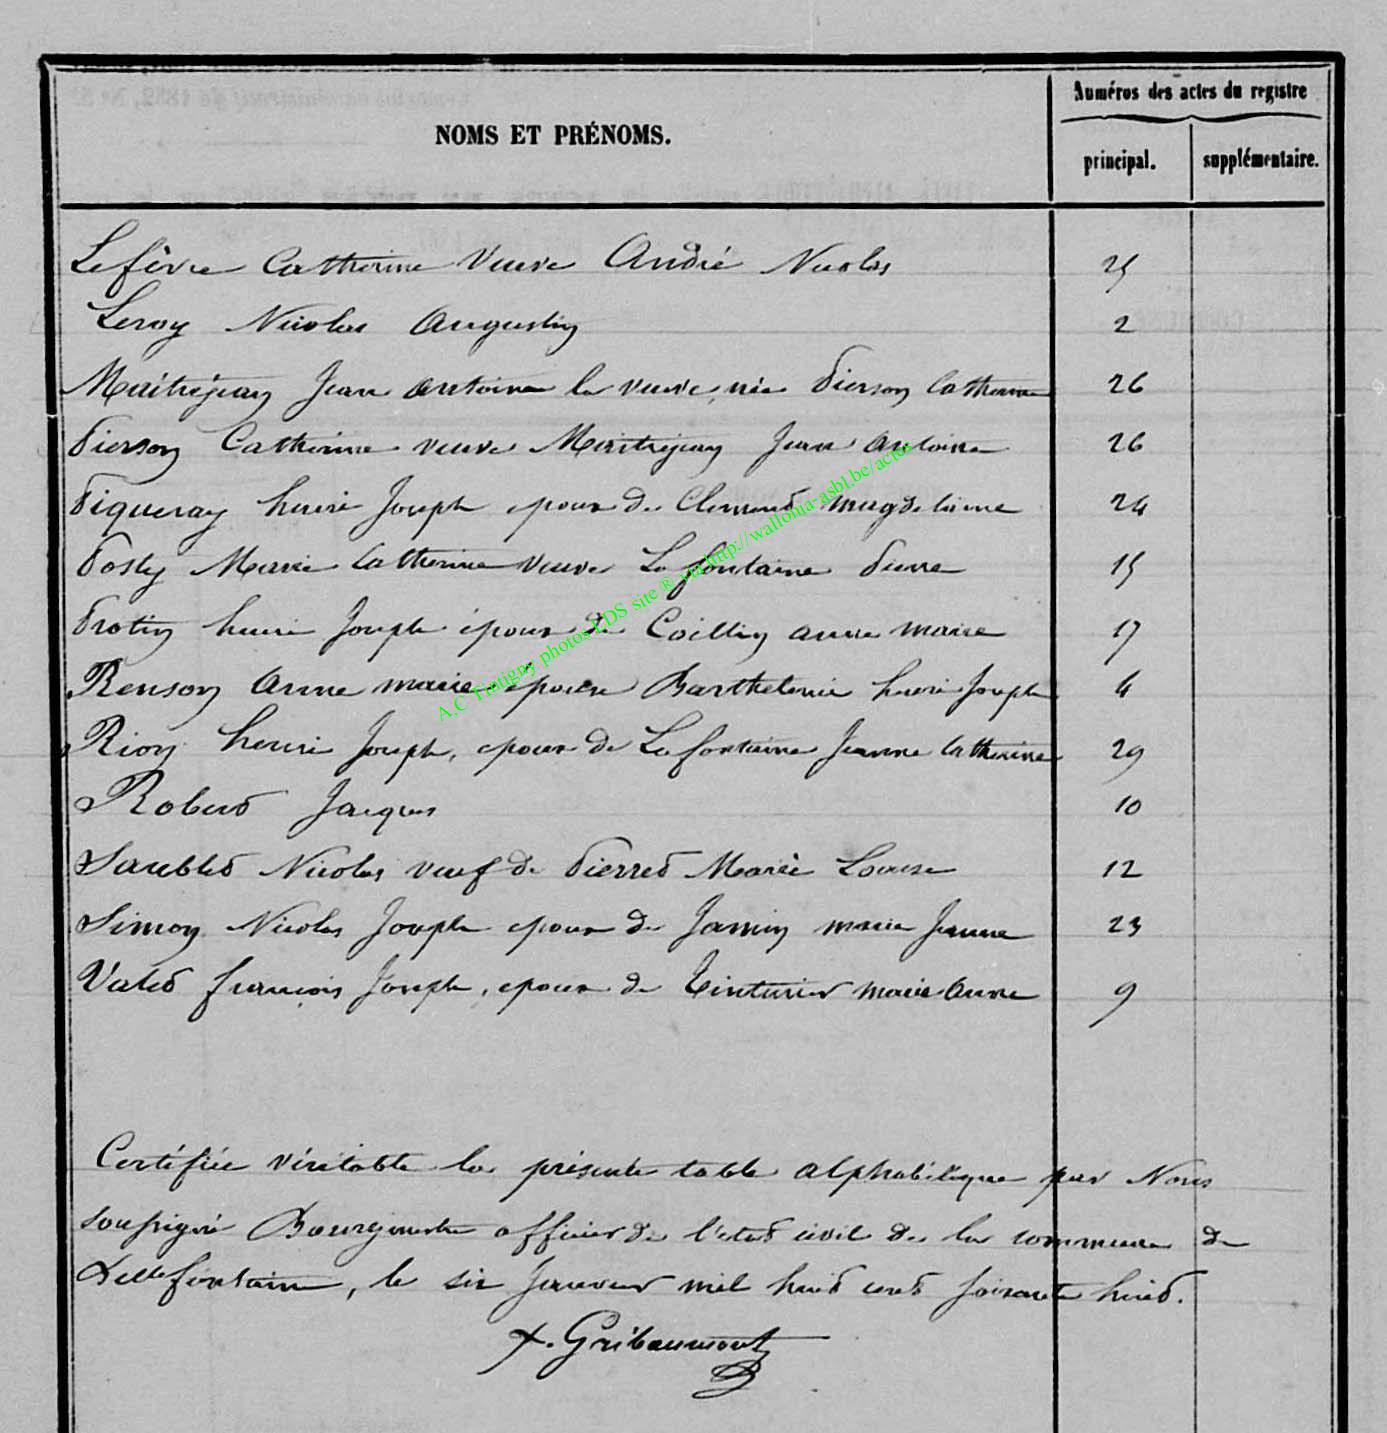 Numéros des actes du registre
NOMS ET PRÉNOMS.
principal. supplémentaire.
Lefèvre Catherine Veuve André Nicolas 25
Leroy Nicolas Augustin 2
Maitrejean Jean Antoine la veuve, née Pierson Catherine 26
Pierson Catherine veuve Maitrejean Jean Antoine 26
Piqueray henri Joseph epoux de Clement magdelaine 24
Posty Marie Catherine veuve La fontaine Pierre 15
Protin henri Joseph époux de Coillin anne marie 17
Renson Anne marie épouse Barthelemi henri Joseph 4
Rion henri Joseph, epoux de Lafontaine Jeanne Catherine 29
Robert Jacques 10
Saublet Nicolas veuf de Pierret Marie Louise 12
Simon Nicolas Joseph epoux de Jamin marie Jeanne 23
Valet françois Joseph, epoux de Tinturier marie Anne 9
Certifiée véritable la présente table alphabétique par Nous
soussigné Bourgmestre officier de l'etat civil de la commune de
Bellefontaine, le six Janvier mil huit cent soixante huit.
Gribaumont
A.C Tintigny photos LDS site ® via http://wallonia-asbl.be/actes